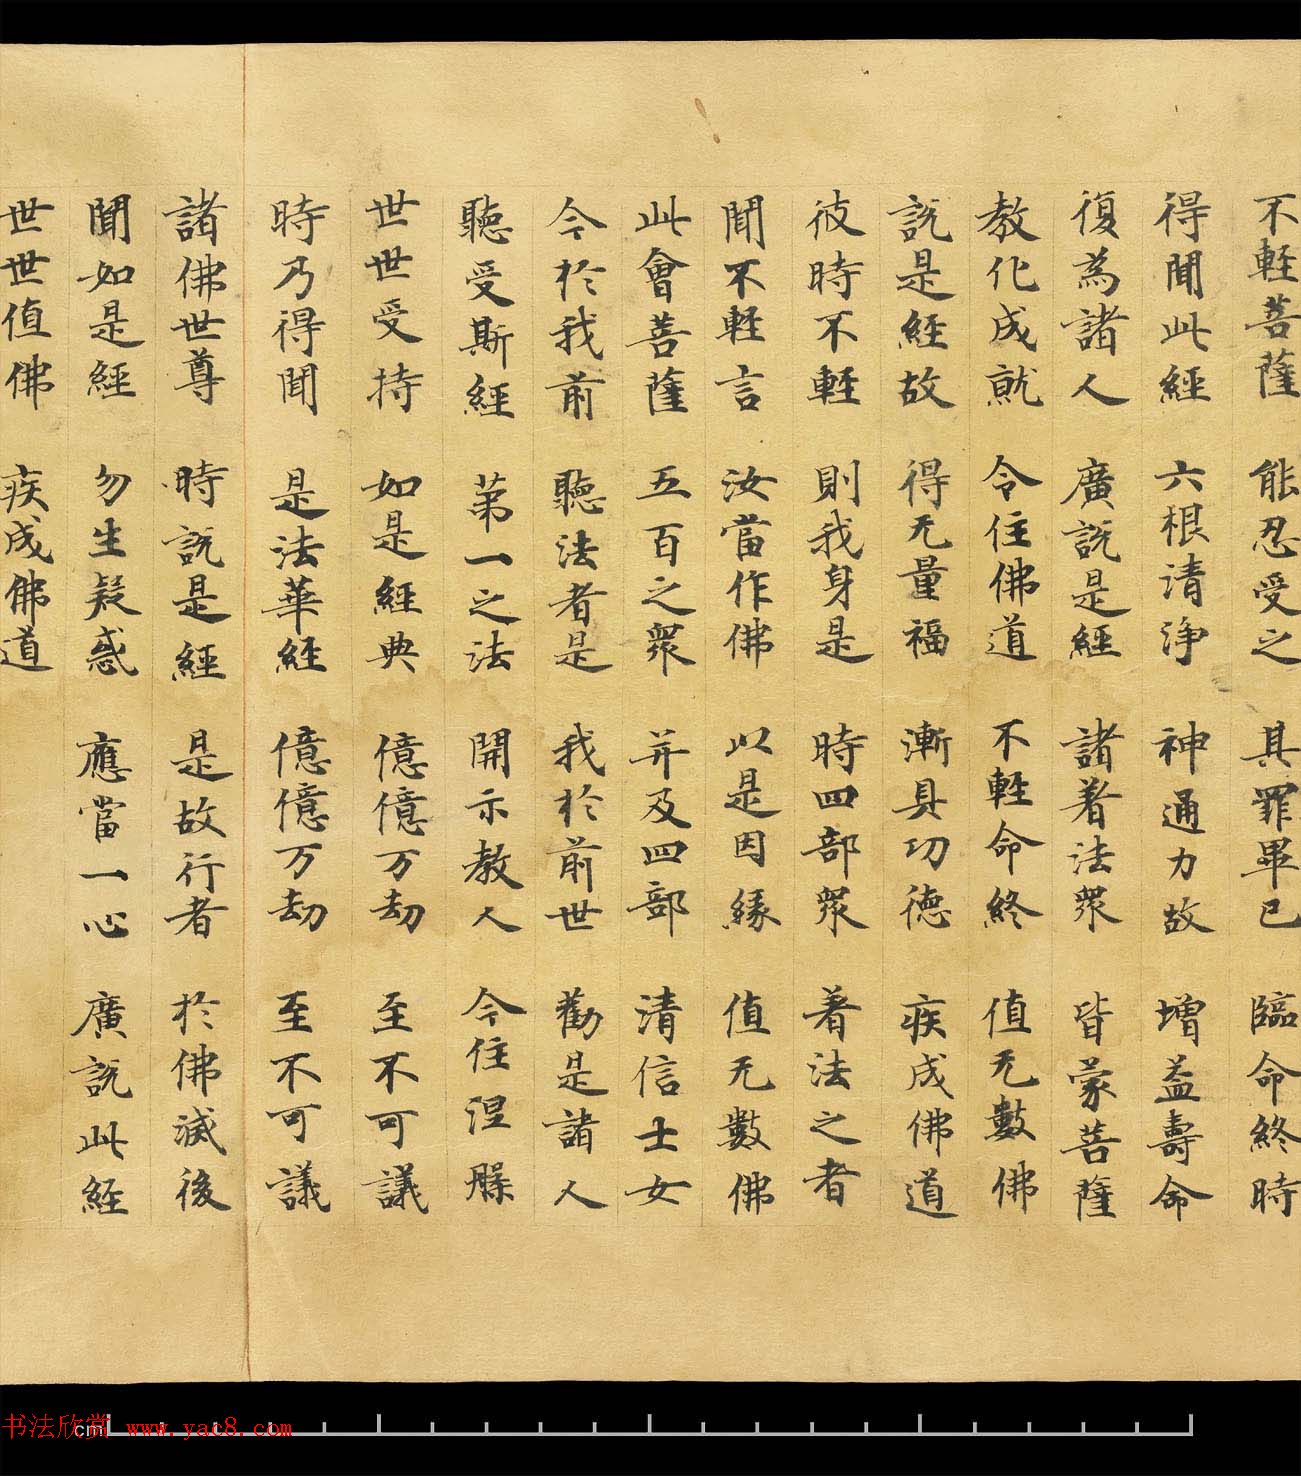 不輕菩薩 能忍受之 其罪畢已 臨命終時
得聞此經 六根清淨 神通力故 增益壽命
復為諸人 廣說是經 諸著法眾 皆蒙菩薩
教化成就 令住佛道 不輕命終 值无數佛
說是經故 得无量福 漸具功德 疾成佛道
彼時不輕 則我身是 時四部眾 著法之者
聞不輕言 汝當作佛 以是因緣 值无數佛
此會菩薩 五百之眾 并及四部 清信士女
今於我前 聽法者是 我於前世 勸是諸人
聽受斯經 第一之法 開示教人 令住涅槃
世世受持 如是經典 億億万劫 至不可議
時乃得聞 是法華經 億億万劫 至不可議
諸佛世尊 時說是經 是故行者 於佛滅後
聞如是經 勿生疑惑 應當一心 廣說此經
世世值佛 疾成佛道
书法欣赏 www.yac8.com
cm